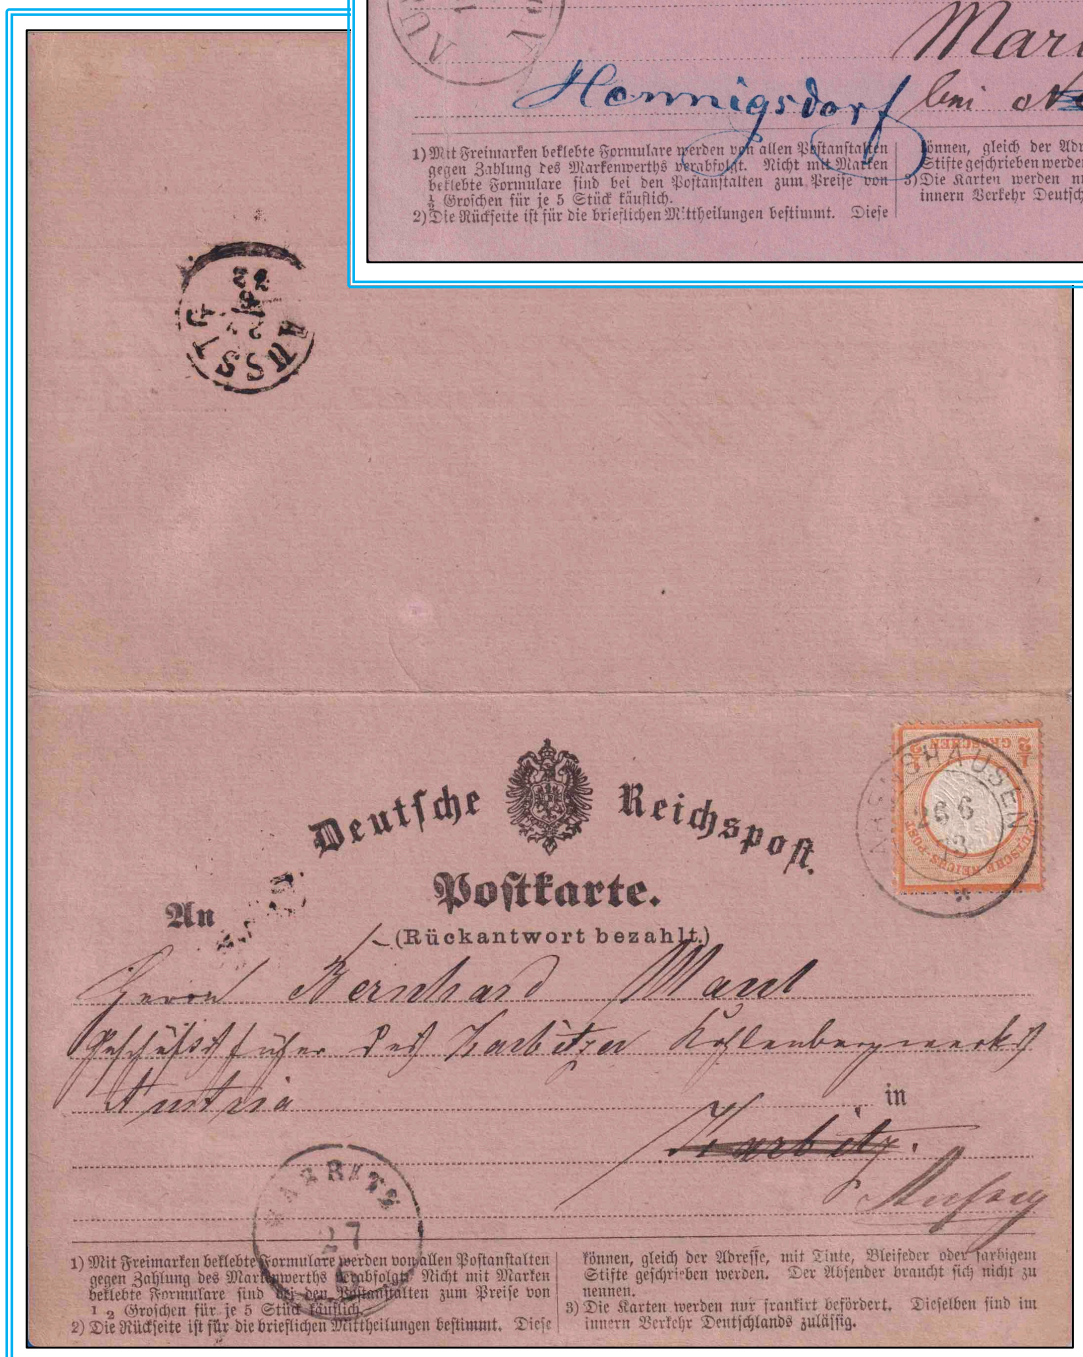 Mar
Hennigsdorf bei
1) Mit Freimarken beklebte Formulare werden von allen Postanstalten
gegen Zahlung des Markenwerths verabfolgt. Nicht mit Marken
beklebte Formulare sind bei den Postanstalten zum Preise von
½ Groschen für je 5 Stück käuflich.
2) Die Rückseite ist für die brieflichen Mittheilungen bestimmt. Diese
können, gleich der Adr
Stifte geschrieben werde
3) Die Karten werden n
innern Verkehr Deutsch
AUSSIG
Deutsche Reichspost.
Postkarte.
(Rückantwort bezahlt)
½ GROSCHEN ½
DEUTSCHE REICHS-POST
26 6
73
An
Herrn Bernhard Maul
Geschäftsführer des Karbitzer Kohlenbergwerks
Austria
in
Karbitz.
Aussig
KARBITZ
27
6
1) Mit Freimarken beklebte Formulare werden von allen Postanstalten
gegen Zahlung des Markenwerths verabfolgt. Nicht mit Marken
beklebte Formulare sind bei den Postanstalten zum Preise von
1 2 Groschen für je 5 Stück käuflich.
2) Die Rückseite ist für die brieflichen Mittheilungen bestimmt. Diese
können, gleich der Adresse, mit Tinte, Bleifeder oder farbigem
Stifte geschrieben werden. Der Absender braucht sich nicht zu
nennen.
3) Die Karten werden nur frankirt befördert. Dieselben sind im
innern Verkehr Deutschlands zulässig.